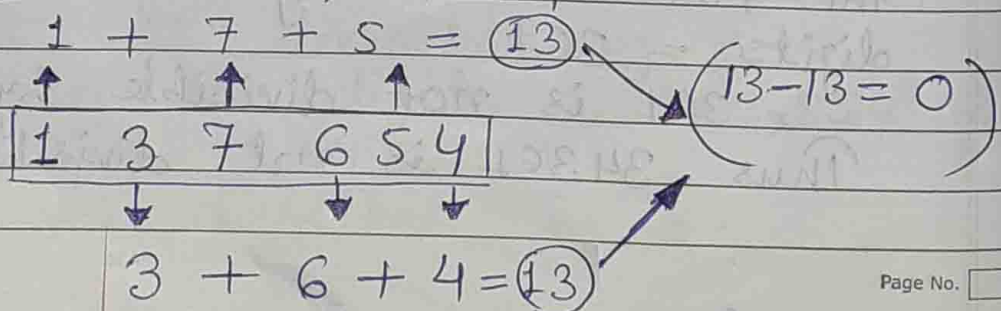 1 + 7 + 5 = 13
13-13 = 0
1 3 7 6 5 4
3 + 6 + 4 = 13
Page No.